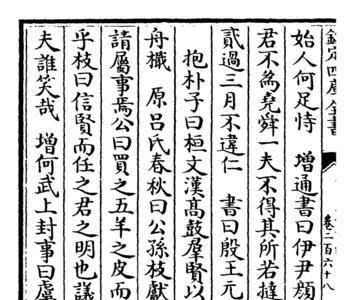 欽定四庫全書
卷二百六十八
始人何足恃　増通書曰伊尹顔
君不為堯舜一夫不得其所若撻
貳過三月不違仁　書曰殷王元
抱朴子曰桓文漢髙鼓羣賢以
舟檝　原吕氏春秋曰公孫枝獻
請屬事焉公曰買之五羊之皮而
乎枝曰信賢而任之君之明也議
夫誰笑哉　増何武上封事曰虞